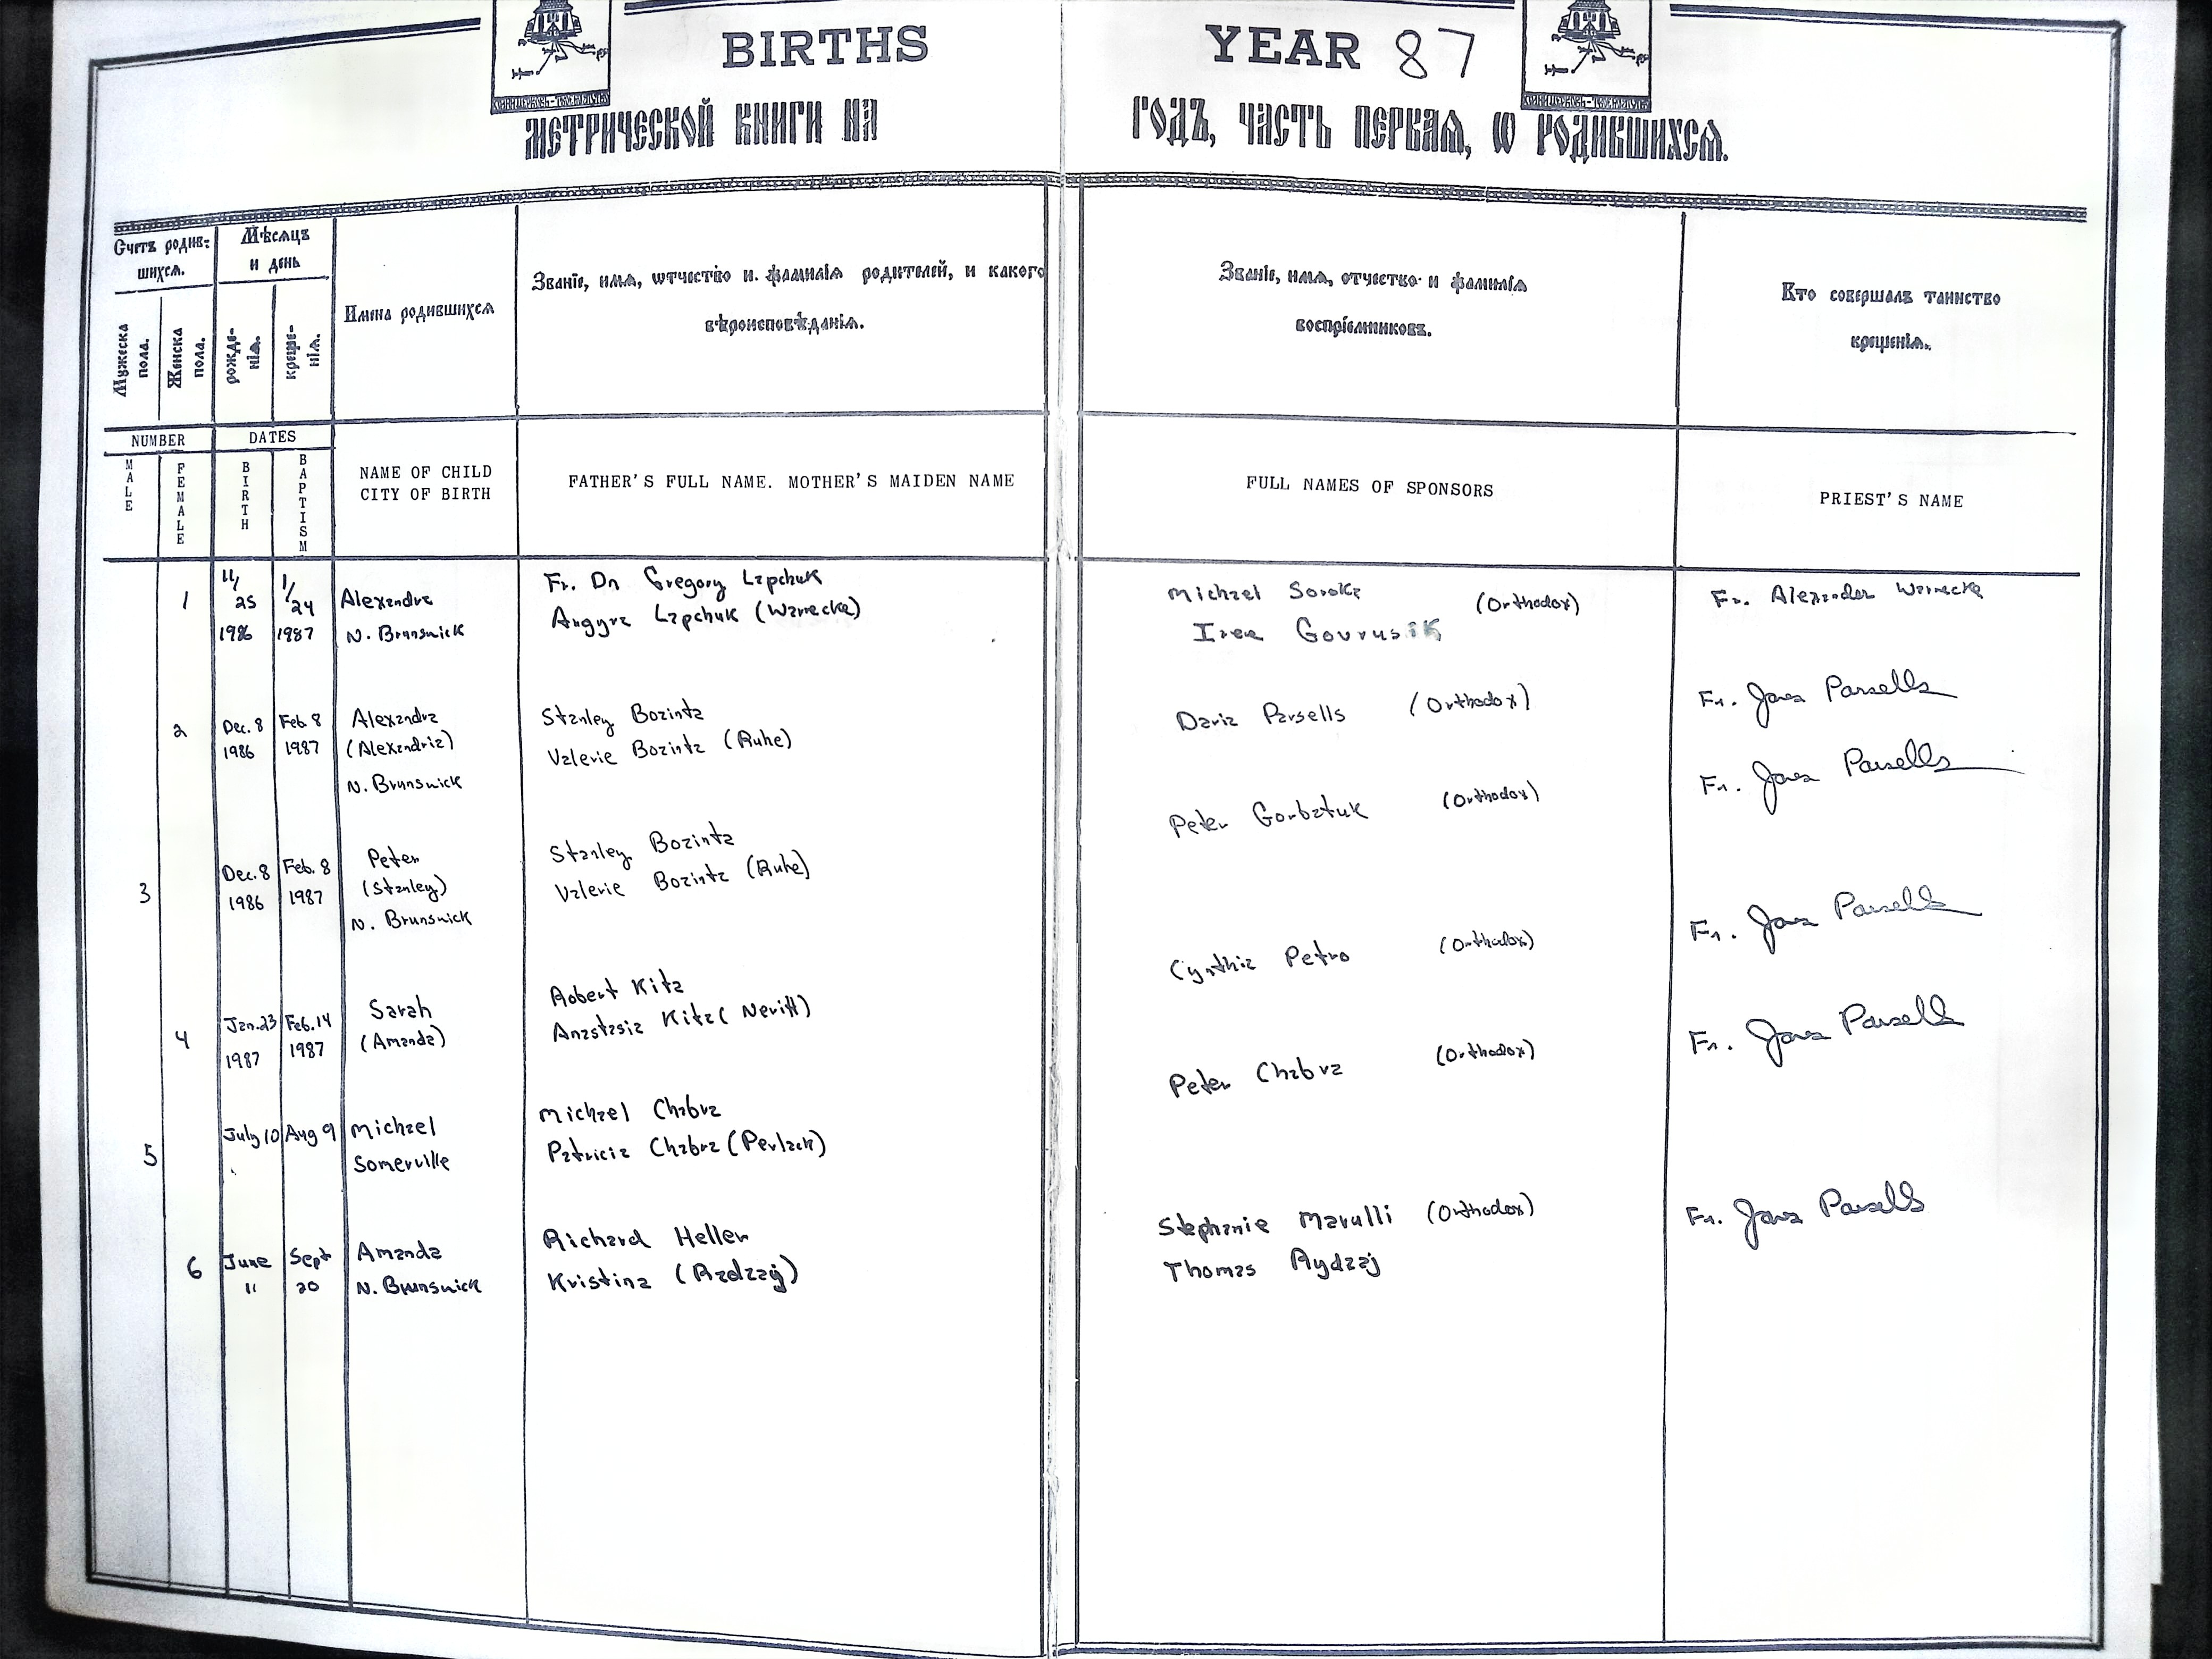 BIRTHS
YEAR 87
МЕТРИЧЕСКОЙ КНИГИ НА
ГОДЪ, ЧАСТЬ ПЕРВАѦ, Ѡ РОДИВШИХСѦ.
Счетъ родив-
шихсѧ.
Мѣсѧцъ
и день
Мужеска
пола.
Женска
пола.
рожде-
нїѧ.
креще-
нїѧ.
Имена родившихсѧ
Званїе, имѧ, ѡтчество и фамилїѧ родителей, и какого
вѣроисповѣданїѧ.
Званїе, имѧ, отчество и фамилїѧ
воспрїемниковъ.
Кто совершалъ таинство
крещенїѧ.
NUMBER
DATES
MALE
FEMALE
BIRTH
BAPTISM
NAME OF CHILD
CITY OF BIRTH
FATHER'S FULL NAME. MOTHER'S MAIDEN NAME
FULL NAMES OF SPONSORS
PRIEST'S NAME
1
11/
25
1986
1/
24
1987
Alexandra
N. Brunswick
Fr. Dn Gregory Lapchuk
Lapchuk (Warnecke)
Michael Soroka (Orthodox)
Fr. Alexander Warnecke
2
Dec. 8
1986
Feb 8
1987
Alexandra
(Alexandria)
N. Brunswick
Stanley Bozinta
Valerie Bozinta (Ruhe)
Daria Parsells (Orthodox)
Fr. Parsells
3
Dec. 8
1986
Feb. 8
1987
Peter
(Stanley)
N. Brunswick
Stanley Bozinta
Valerie Bozinta (Ruhe)
Peter Gorbatuk (Orthodox)
Fr. Parsells
4
Jan. 23
1987
Feb. 14
1987
Sarah
(Amanda)
Robert Kita
Anastasia Kita (Neritt)
Cynthia Petro (Orthodox)
Fr. Parsells
5
July 10
Aug 9
Michael
Somerville
Michael Chabra
Patricia Chabra (Perlack)
Peter Chabra (Orthodox)
Fr. Parsells
6
June
11
Sept
20
Amanda
N. Brunswick
Richard Heller
Kristina (Radzaj)
Stephanie Marulli (Orthodox)
Thomas Rydzaj
Fr. Parsells